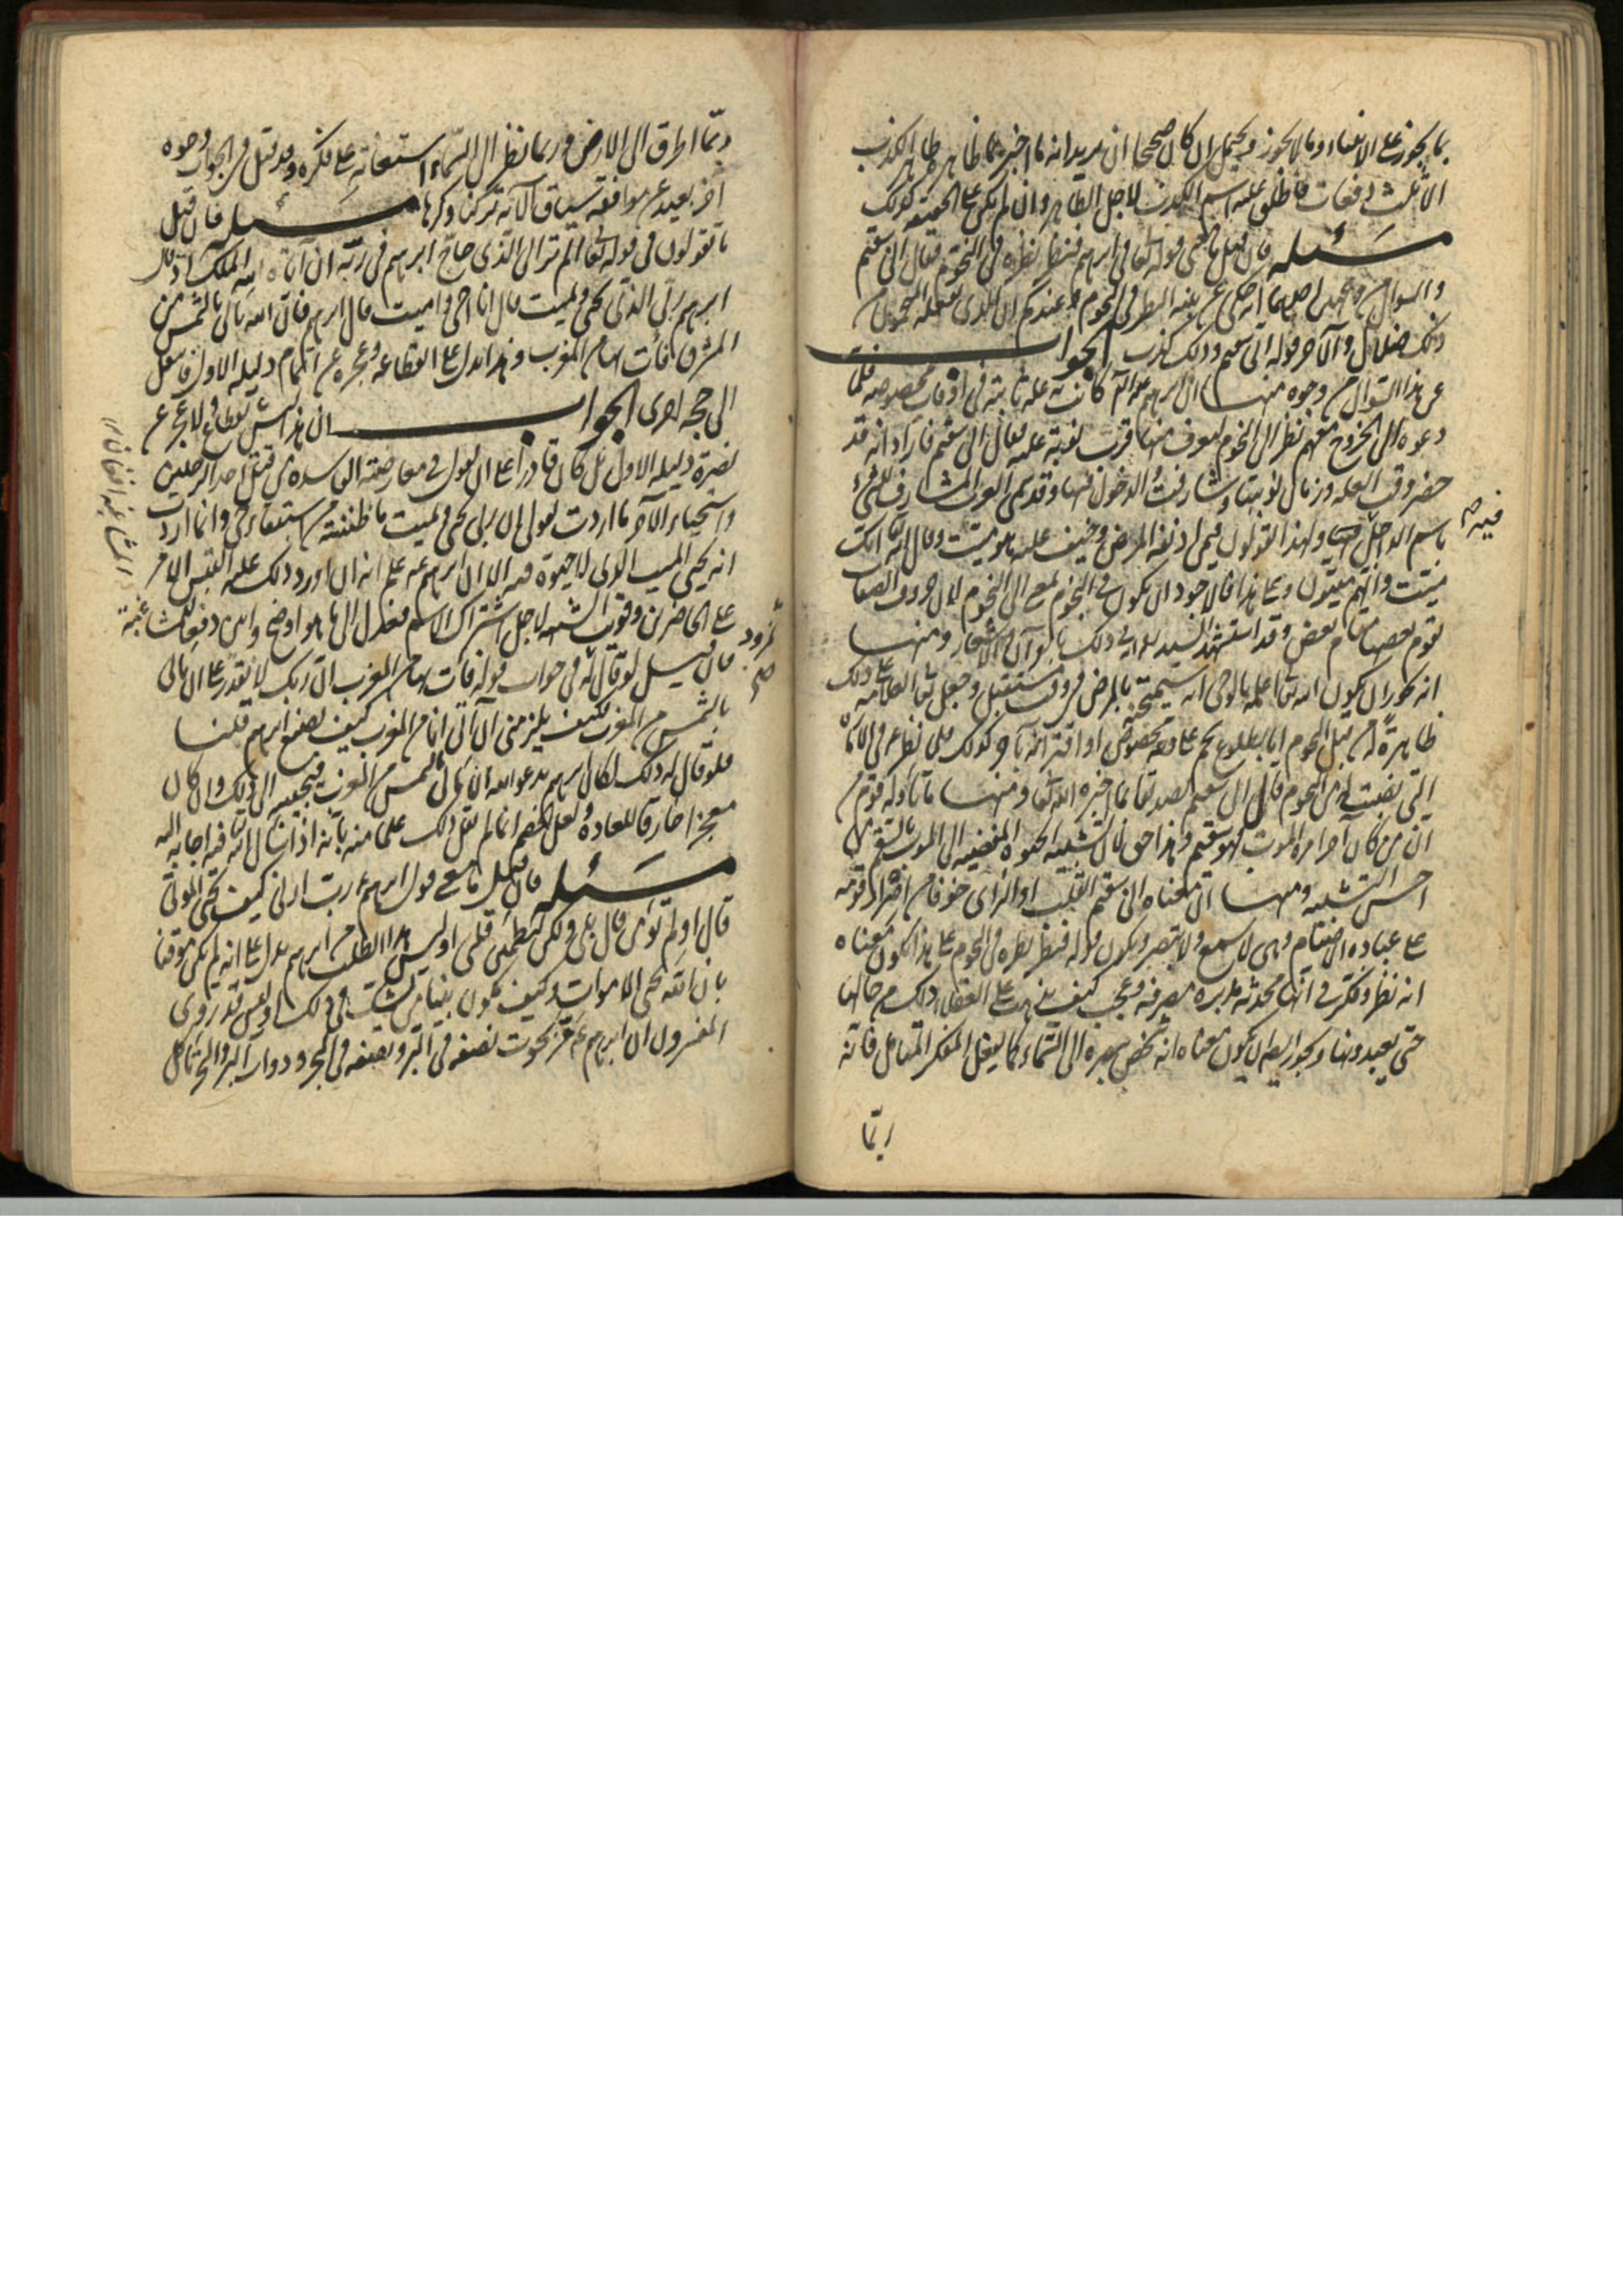 بما يجوز على الانبياء وما لا يجوز ويحتمل ان كان صحيحا ان يريد انه ما اخبر بما ظاهره ظاهر الكذب
الا ثلث دفعات فاطلق عليه اسم الكذب لاجل الظاهر وان لم يكن على الحقيقة كذلك
مسئلة فان قيل ما معنى قوله تعالى في ابرهيم فنظر نظرة في النجوم فقال اني سقيم
والسؤال من وجهين احدهما انه حكى عن نبيه النظر في النجوم وعندكم ان الذي يفعله المنجمون من
ذلك ضلال والآخر قوله اني سقيم وذلك كذب الجواب
عن هذا السؤال من وجوه منها ان ابرهيم عليه السلام كانت به علة تاتيه في اوقات مخصوصة فلما
دعوه الى الخروج معهم نظر الى النجوم ليعرف منها قرب نوبة علته فقال اني سقيم فاراد انه قد
حضر وقت العلة وزمان نوبتها وشارفت الدخول فيها وقد تسمى العرب المشارف للشيء
باسم الداخل فيه ولهذا يقولون فيمن ادنفه المرض وخيف عليه هو ميت وقال الله تعالى انك
ميت وانهم ميتون وعلى هذا فالاجود ان يكون في النجوم بمعنى الى النجوم لان حروف الصفات
يقوم بعضها مقام بعض وقد استشهد السيد على ذلك بالقرآن والاشعار ومنها
انه يجوز ان يكون الله تعالى اعلمه بالوحي انه سيمتحنه بالمرض في وقت مستقبل وجعل تعالى العلامة على ذلك
ظاهرة من قبل النجوم اما بطلوع نجم على وجه مخصوص او اقترانه بآخر كذلك فلما نظر عم في الامارة
التي نصبت له من النجوم قال اني سقيم تصديقا بما اخبره الله تعالى ومنها ما تاوله قوم من
ان من كان آخر امره الموت فهو سقيم وهذا حق لان تشبيه الحيوة المفضية الى الموت بالسقم من
احسن التشبيه ومنها ان معناه اني سقيم القلب او الراى خوفا من اصرار قومه
على عبادة الاصنام وهي لا تسمع ولا تبصر ويكون قوله فنظر نظرة في النجوم على هذا يكون معناه
انه نظر وفكر في انها محدثة مدبرة مصرفة وعجب كيف يذهب على العقلاء ذلك من حالها
حتى يعبدونها ويجوز ايضا ان يكون معناه انه شخص ببصره الى السماء كما يفعل المفكر المتامل فانه
ربما
فيه صح
ربما اطرق الى الارض وربما نظر الى السماء استعانة على فكره وقد قيل في الجواب وجوه
اخر بعيد عن موافقة سياق الآية تركنا ذكرها مسئلة فان قيل
ما تقولون في قوله تعالى الم تر الى الذي حاج ابرهيم في ربه ان آتاه الله الملك اذ قال
ابرهيم ربي الذي يحيي ويميت قال انا احي واميت قال ابرهيم فان الله ياتي بالشمس من
المشرق فأت بها من المغرب وهذا يدل على انقطاعه وعجزه عن اتمام دليله الاول فانتقل
الى حجة اخرى الجواب ان هذا ليس بانقطاع ولا عجز عن
نصرة دليله الاول بل كان قادرا على ان يقول في معارضته الفاسدة من قتل احد الرجلين
واستحياء الآخر ما اردت بقولي ان ربي يحيي ويميت ما ظننته من استبقاء حي وانما اردت
انه يحيي الميت الذي لا حيوة فيه الا ان ابرهيم عم علم انه ان اورد ذلك عليه التبس الامر
على الحاضرين وقويت الشبهة لاجل اشتراك الاسم فعدل الى ما هو اوضح وابين دفعا للشبهة
فان قيل لو قال له في جواب قوله فأت بها من المغرب ان ربك لا يقدر على ان ياتي
بالشمس من المغرب فكيف يلزمني ان آتي انا من المغرب كيف يصنع ابرهيم قلنا
فلو قال له ذلك لكان ابرهيم يدعو الله الى ان ياتي بالشمس من المغرب فيجيبه الى ذلك وان كان
معجزا خارقا للعادة ولعل الخصم انما لم يقل ذلك علما منه بانه اذا سال الله فيه اجابه اليه
مسئلة فان قيل ما معنى قول ابرهيم رب ارني كيف تحيي الموتى
قال اولم تؤمن قال بلى ولكن ليطمئن قلبي اوليس هذا الطلب من ابرهيم يدل على انه لم يكن موقنا
بان الله يحيي الاموات وكيف يكون نبيا من يشك في ذلك اوليس قد روى
المفسرون ان ابرهيم عم مر بحوت نصفه في البر ونصفه في البحر ودواب البر والبحر تاكل
نمرود
صح